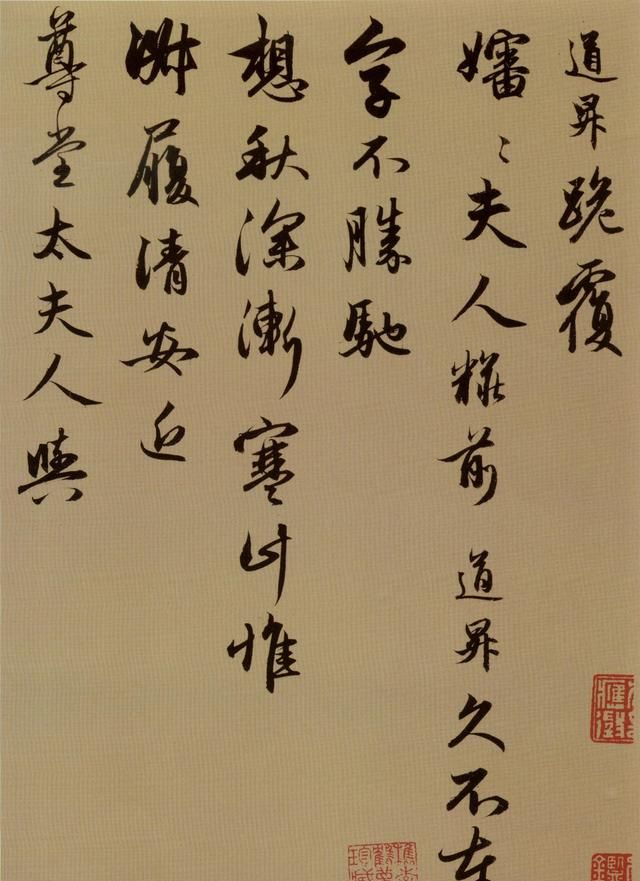 道昇跪覆
嬸〻夫人粧前 道昇久不奉
字不勝馳
想秋深漸寒計惟
淑履清安近
尊堂太夫人與